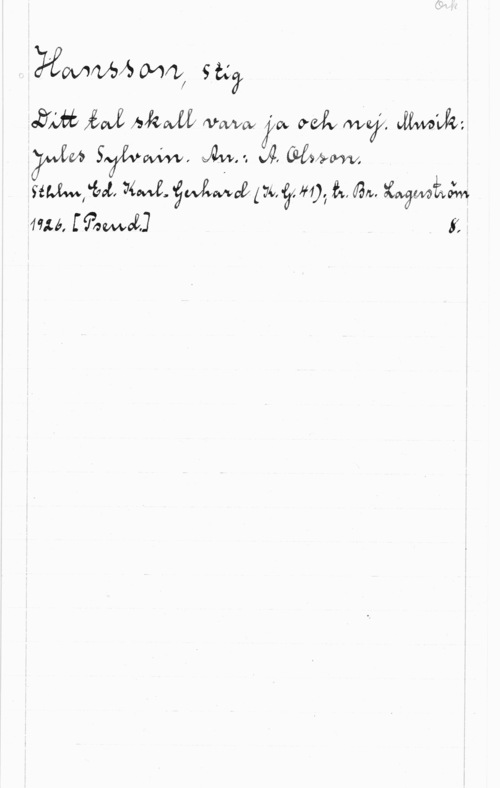 Ork
Hansson, Stig
Ditt tal skall vara ja och nej. Musik:
Jules Sylvain. Arr.: A. Olsson.
Sthlm, Ed. Karl-Gerhard (K.G.41); tr. Br. Lagerström
1926. [Pseud.] 8.